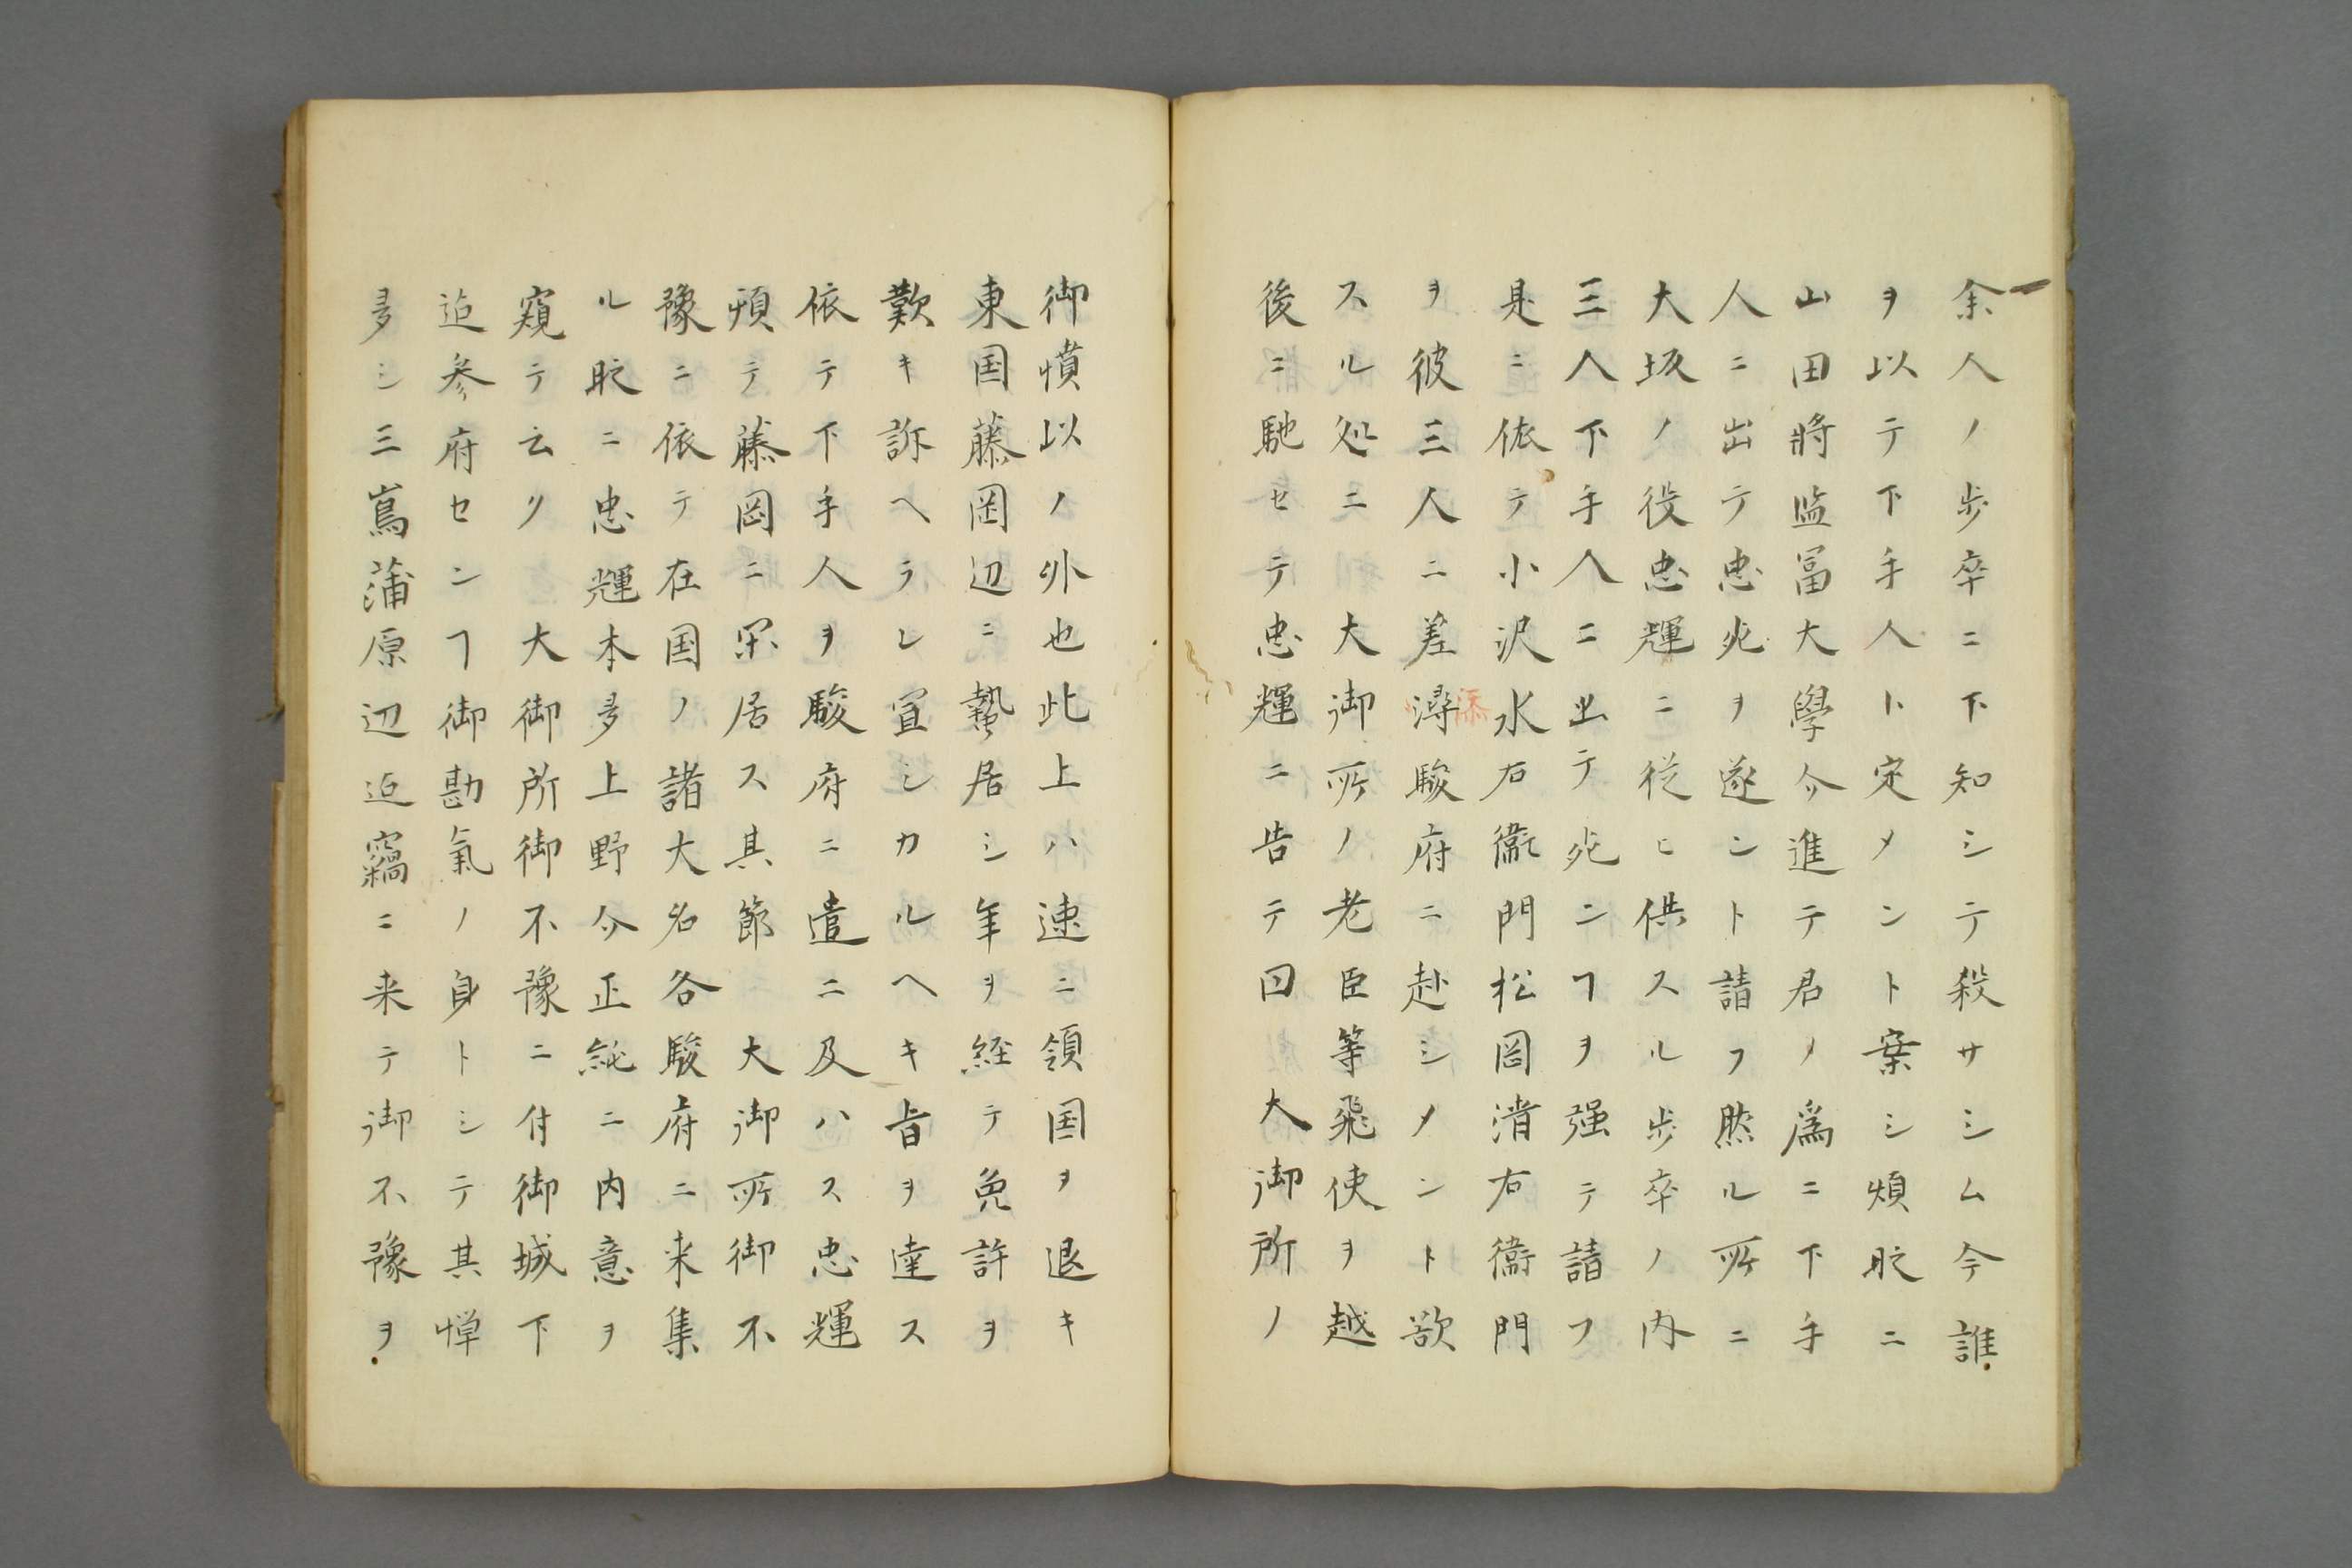 余人ノ歩卒ニ下知シテ殺サシム今誰
ヲ以テ下手人ト定メント案シ煩眨ニ
山田将监冨大學介進テ君ノ爲ニ下手
人ニ出テ忠死ヲ遂ント請フ然ル所ニ
大坂ノ役忠輝ニ従ヒ供スル歩卒ノ内
三人下手人ニ出テ死ンヿヲ强テ請フ
是ニ依テ小沢水右衞門松岡清右衞門
ヲ彼三人ニ差潯駿府ニ赴シメント欲
添
スル処ニ 大御所ノ老臣等飛使ヲ越
後ニ馳セテ忠輝ニ告テ曰 大御所ノ
御憤以ノ外也此上ハ速ニ領国ヲ退キ
東国藤岡辺ニ蟄居シ年ヲ經テ免許ヲ
歎キ訴ヘラレ宜シカルヘキ旨ヲ達ス
依テ下手人ヲ駿府ニ遣ニ及ハス忠輝
頓テ藤岡ニ閑居ス其節 大御所御不
豫ニ依テ在国ノ諸大名各駿府ニ来集
ル眨ニ忠輝本多上野介正純ニ内意ヲ
窺テ云ク 大御所御不豫ニ付御城下
迠参府センヿ御勘氣ノ身トシテ其憚
多シ三嶌蒲原辺迠竊ニ来テ御不豫ヲ